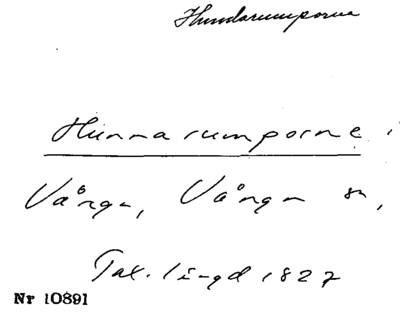 Hundarumporna
Hunna rumporne i
Vånga, Vånga sn,
Tax. längd 1827
Nr 10891